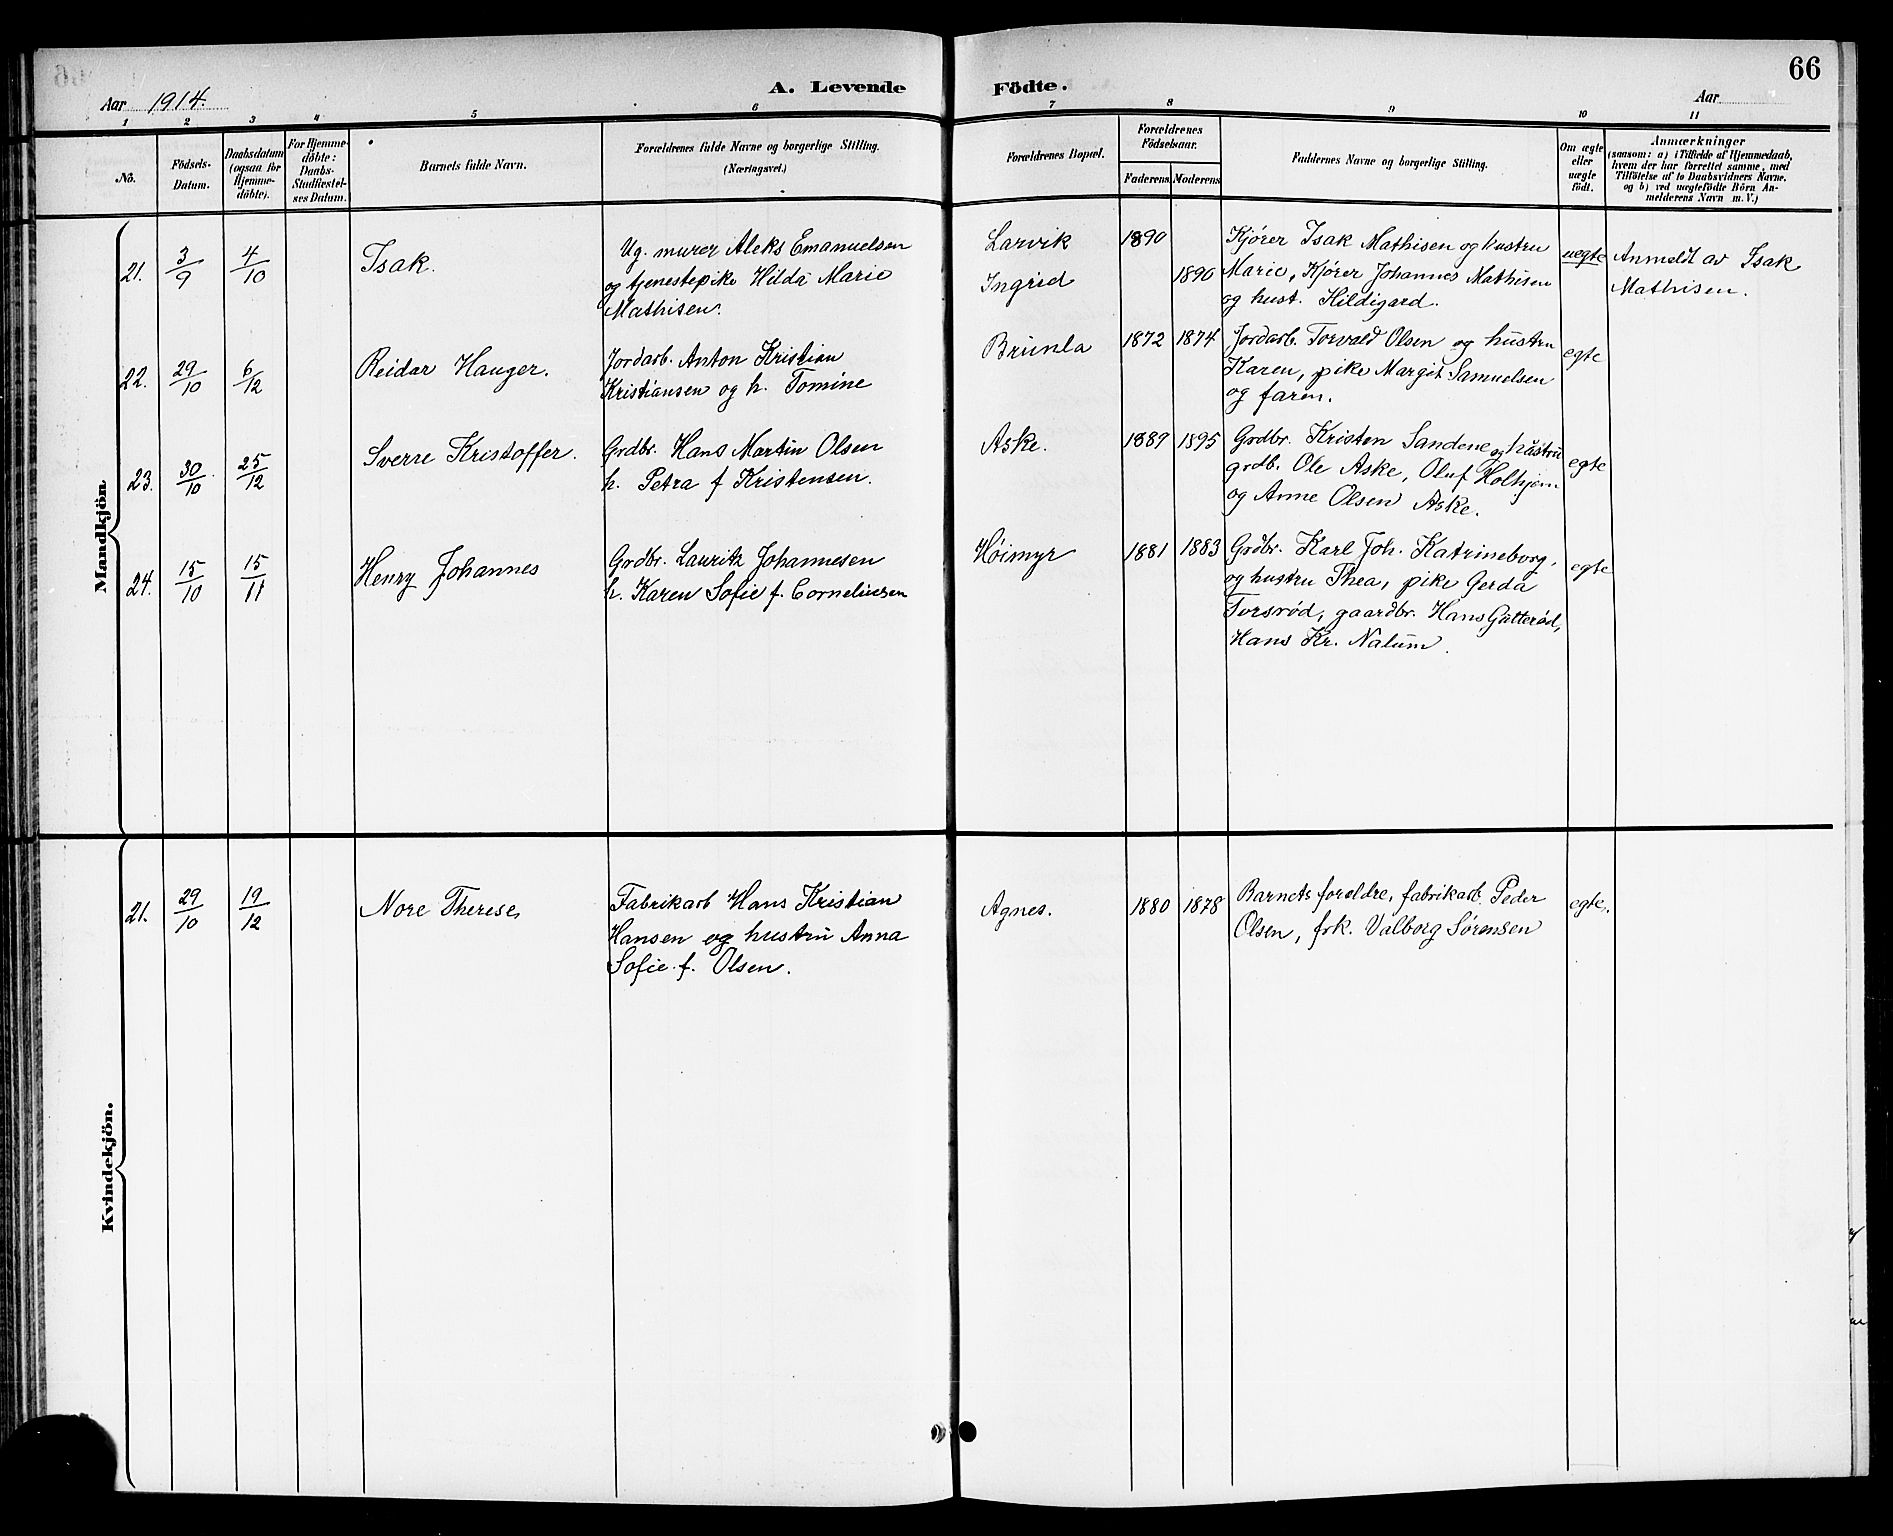 66
Aar 1914.
A. Levende Födte.
Aar
1 2 3 4 5 6 7 8 9 10 11
No.
Födsels-
Datum.
Daabsdatum
(ogsaa for
Hjemme-
döbte).
For Hjemme-
döbte:
Daabs-
Stadfæstel-
ses Datum.
Barnets fulde Navn.
Forældrenes fulde Navne og borgerlige Stilling.
(Næringsvei.)
Forældrenes Bopæl.
Forældrenes
Födselsaar.
Faderens. Moderens
Faddernes Navne og borgerlige Stilling.
Om ægte
eller
uægte
födt.
Anmærkninger
(saasom: a) i Tilfælde af Hjemmedaab,
hvem der har forrettet samme, med
Tilföielse af to Daabsvidners Navne.
og b) ved uægtefödte Börn An-
melderens Navn m. V.)
Mandkjön
21. 3/9 4/10 Isak.
Ug. murer Aleks Emanuelsen
og tjenestepike Hilda Marie
Mathisen.
Larvik 1890
Ingrid 1890
Kjører Isak Mathisen og hustru
Marie, Kjører Johannes Mathisen
og hust. Hildigard.
uegte
Anmeldt av Isak
Mathisen.
22. 29/10 6/12 Reidar Hauger.
Jordarb. Anton Kristian
Kristiansen og h. Tomine
Brunla 1872 1874
Jordarb. Torvald Olsen og hustru
Karen, pike Margit Samuelsen
og faren.
egte
23. 30/10 25/12 Sverre Kristoffer.
Grdbr. Hans Martin Olsen
h. Petra f Kristensen.
Aske. 1889 1895
Grdbr. Kristen Sandene og hustru
grdb. Ole Aske, Oluf Holhjem
og Anne Olsen Aske.
egte
24. 15/10 15/11 Henry Johannes
Grdbr. Lauritz Johannesen
h. Karen Sofie f. Corneliusen
Høimyr 1881 1883
Grdbr. Karl Joh. Katrineborg,
og hustru Thea, pike Gerda
Torsrød, gaardbr. Hans Gutterød,
Hans Kr. Nalum.
egte
Kvindekjön.
21. 29/10 19/12 Nore Therese,
Fabrikarb Hans Kristian
Hansen og hustru Anna
Sofie f. Olsen.
Agnes. 1880 1878
Barnets foreldre, fabrikarb. Peder
Olsen, frk. Valborg Sørensen
egte.